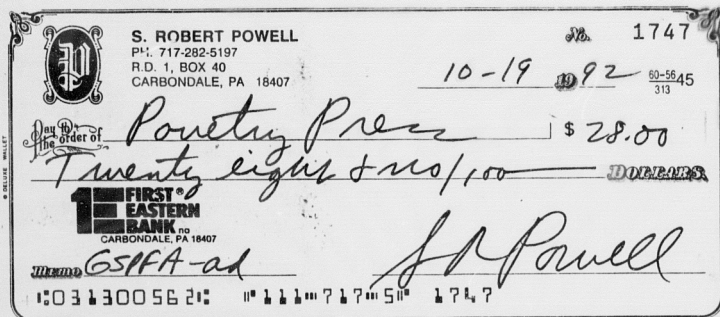 S. ROBERT POWELL
No. 1747
PH. 717-282-5197
R.D. 1, BOX 40
CARBONDALE, PA 18407
10-19 1992 60-5645
313
Pay to the order of Pouetry Press $ 28.00
Twenty eight & no/100 DOLLARS
FIRST®
EASTERN
BANK na
CARBONDALE, PA 18407
Memo GSPFA-ad S R Powell
⑆031300562⑆ ⑈111⑉717⑉5⑈ 1747
© DELUXE WALLET
P